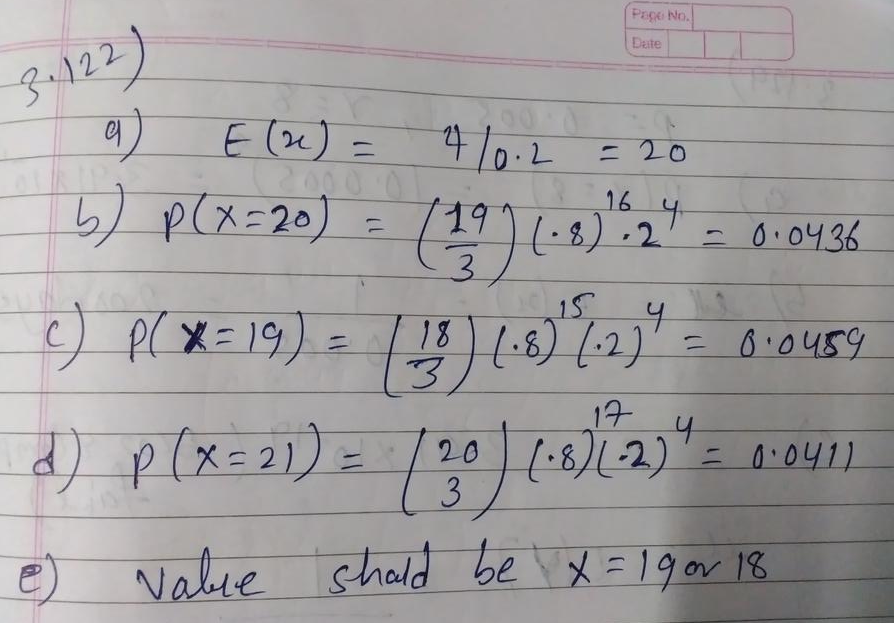 Page No.
Date
3.122)
a) E(x) = 4/0.2 = 20
b) P(X=20) = (19/3) (.8)^16 .2^4 = 0.0436
c) P(X=19) = (18/3) (.8)^15 (.2)^4 = 0.0459
d) P(X=21) = (20 3) (.8)^17 (.2)^4 = 0.0411
e) Value shold be X = 19 or 18